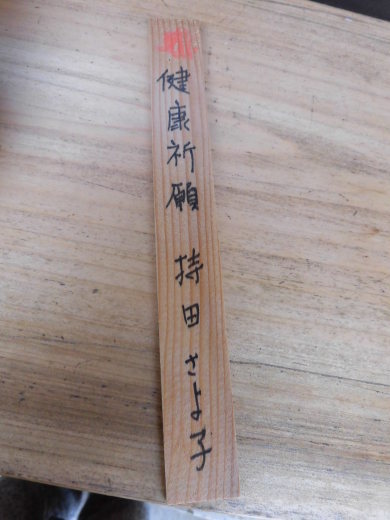 健康祈願 持田 さよ子